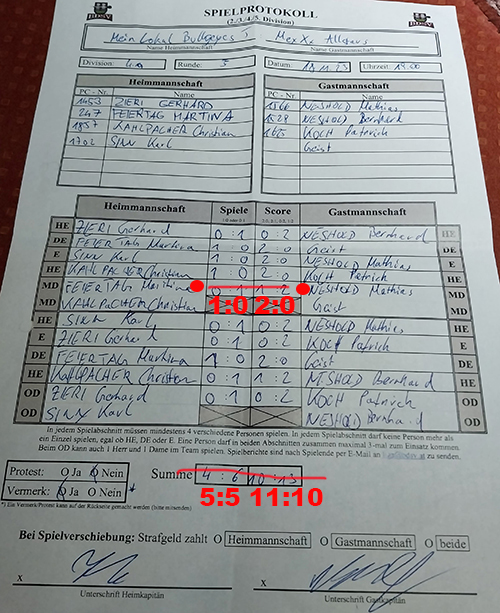 SPIELPROTOKOLL
(2./3./4./5. Division)
Mein Lokal Bullyeyes I MexXx Allstars
Name Heimmannschaft Name Gastmannschaft
Division 4a Runde: 5 Datum: 18.11.23 Uhrzeit 19:00
Heimmannschaft Gastmannschaft
PC - Nr. Name PC - Nr. Name
1453 ZIERI GERHARD 1566 NESHOLD Mathias
247 FEIERTAG MARTINA 1528 NESHOLD Bernhard
1857 KAHLPACHER Christian 1565 KOCH Patrich
1702 SINN Karl Geist
Heimmannschaft Spiele Score Gastmannschaft
1:0 oder 0:1 2:0, 2:1, 0:2, 1:2
HE ZIERI Gerhard 0 : 1 0 : 2 NESHOLD Bernhard HE
DE FEIERTAG Martina 1 : 0 2 : 0 Geist DE
E SINN Karl 0 : 1 0 : 2 NESHOLD Mathias E
HE KAHLPACHER Christian 1 : 0 2 : 0 KOCH Patrich HE
MD FEIERTAG Martina 0 : 1 1 : 2 NESHOLD Mathias MD
1:0 2:0
MD KAHLPACHER Christian Geist MD
HE SINN Karl 0 : 1 0 : 2 NESHOLD Mathias HE
E ZIERI Gerhard 0 : 1 0 : 2 KOCH Patrich E
DE FEIERTAG Martina 1 : 0 2 : 0 Geist DE
HE KAHLPACHER Christian 0 : 1 1 : 2 NESHOLD Bernhard HE
OD ZIERI Gerhard 1 : 0 2 : 0 KOCH Patrich OD
OD SINN Karl NESHOLD Bernhard OD
In jedem Spielabschnitt müssen mindestens 4 verschiedene Personen spielen. In jedem Spielabschnitt darf keine Person mehr als
ein Einzel spielen, egal ob HE, DE oder E. Eine Person darf in beiden Abschnitten zusammen maximal 3-mal zum Einsatz kommen.
Beim OD kann auch 1 Herr und 1 Dame im Team spielen. Spielberichte sind nach Spielende per E-Mail an zu senden.
Protest: O Ja O Nein Summe 4 : 6 10 : 13
Vermerk: O Ja O Nein * 5:5 11:10
*) Ein Vermerk/Protest kann auf der Rückseite gemacht werden (bitte mitsenden)
Bei Spielverschiebung: Strafgeld zahlt O Heimmannschaft O Gastmannschaft O beide
X X
Unterschrift Heimkapitän Unterschrift Gastkapitän